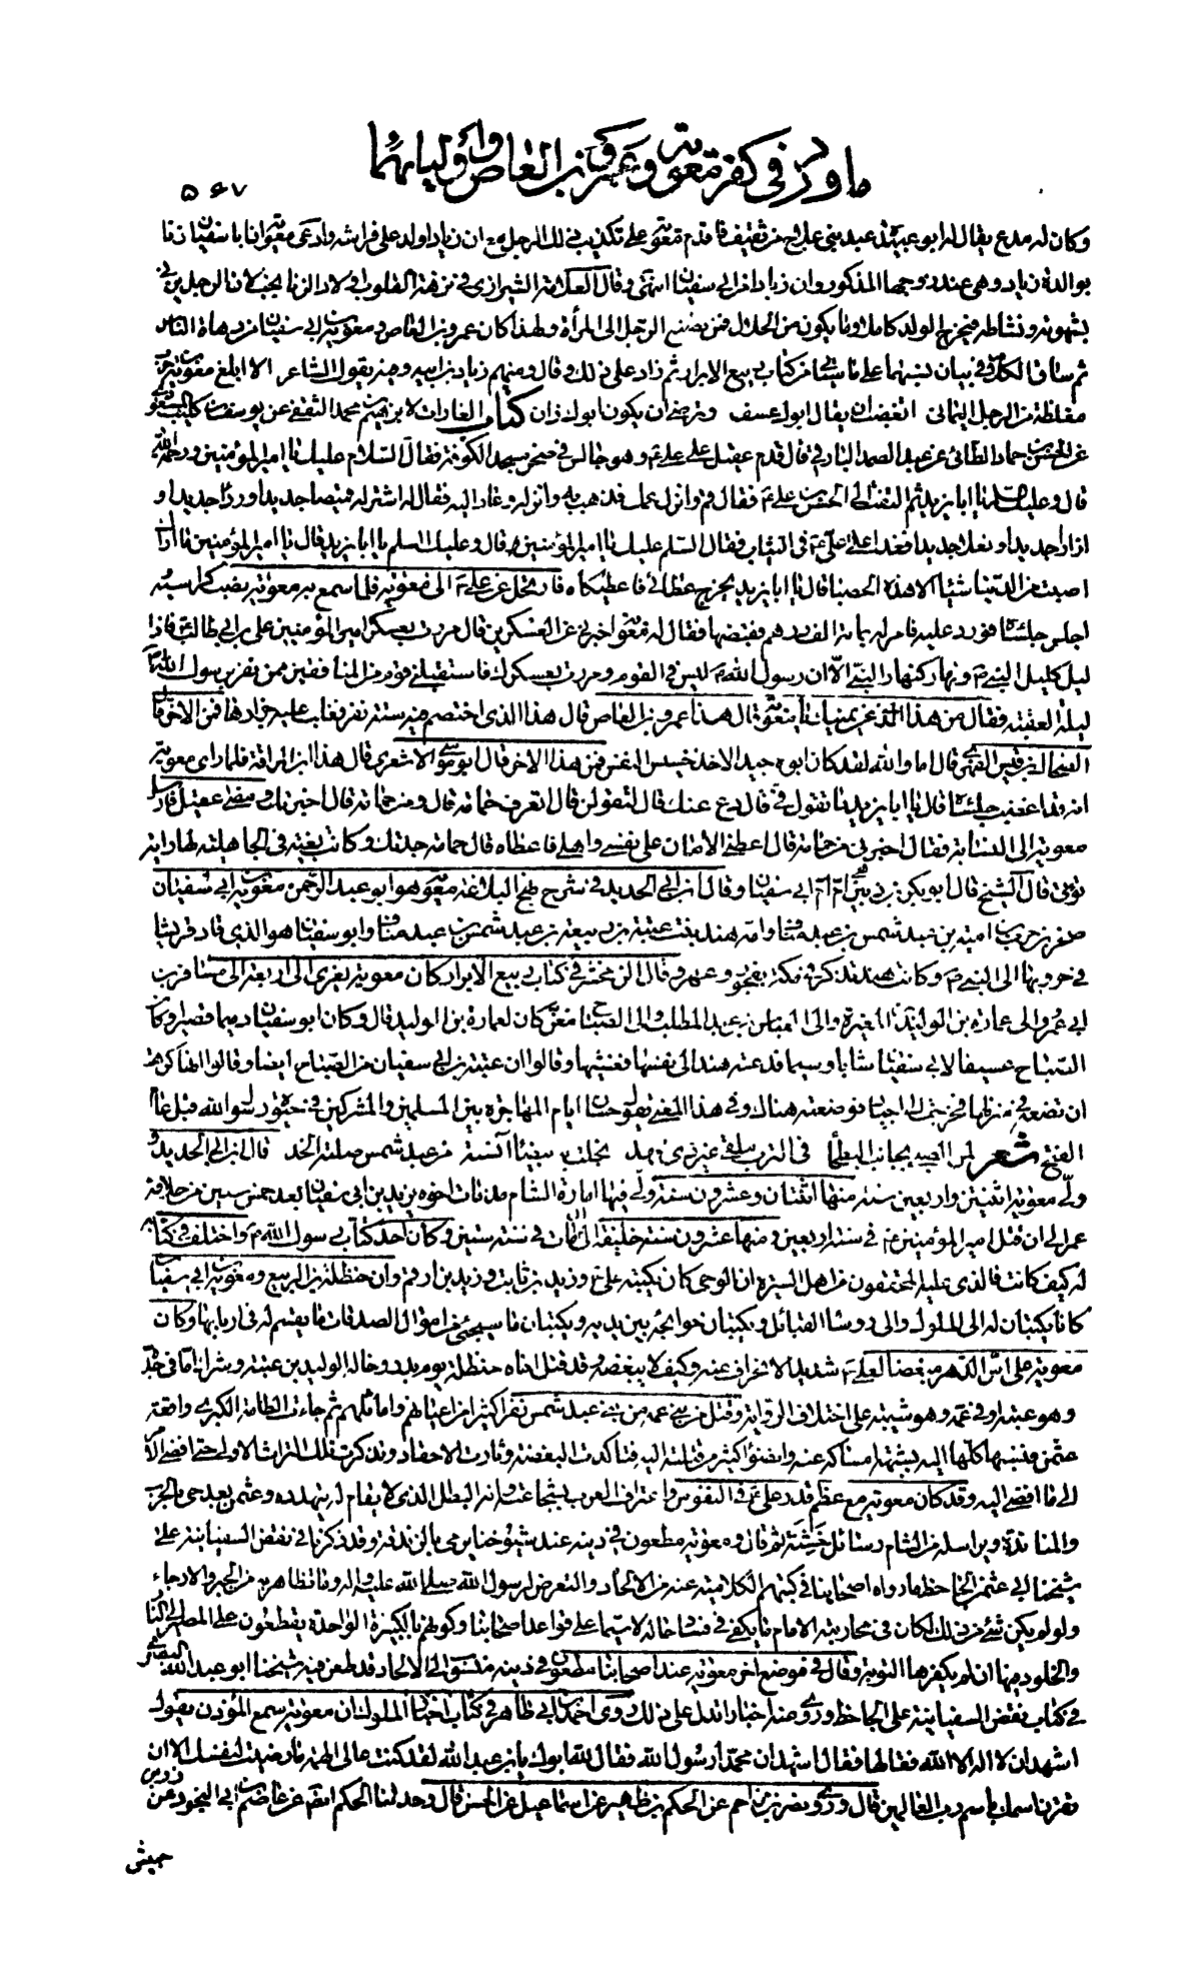 ما ورد في كفر معوية وعمرو بن العاص واوليائهما
٥٦٧
وكان له مدع يقال له ابو عبيد عبد بني علاج من ثقيف فاقدم معوية على تكذيب ذلك الرجل مع ان زيادا ولد على فراشه وادعى معوية ان ابا سفيان زنا
بوالدة زياد وهى عند زوجها المذكور وان زيادا من ابي سفيان انتهى وقال العلامة الشيرازى في نزهة القلوب اولاد الزنا نجب لان الرجل يزنى
بشهوته ونشاطه فيخرج الولد كاملا وما يكون من الحلال فمن تصنع الرجل الى المرأة ولهذا كان عمرو بن العاص ومعوية بن ابي سفيان من دهاة الناس
ثم ساق الكلام في بيان نسبهما على ما سيأتي من كتاب ربيع الابرار ثم زاد على ذلك وقال ومنهم زياد بن ابيه وفيه يقول الشاعر الا ابلغ معوية بن حرب
مغلغلة من الرجل اليماني اتغضب ان يقال ابوك عف وترضى ان يكون ابوك زان كتاب الغارات لابراهيم بن محمد الثقفى عن يوسف بن كليب المسعودي
عن الحسن بن حماد الطائى عن عبد الصمد البارقي قال قدم عقيل على علي ع وهو جالس في صحن مسجد الكوفة فقال السلام عليك يا امير المؤمنين ورحمة الله
قال وعليك السلام يا ابا يزيد ثم التفت الى الحسن بن علي ع فقال قم وانزل عمك فذهب به وانزله وعاد اليه فقال له اشتر له قميصا جديدا ورداء جديدا و
ازارا جديدا ونعلا جديدا فغدا على علي ع في الثياب فقال السلم عليك يا امير المؤمنين قال وعليك السلم يا ابا يزيد قال يا امير المؤمنين ما اراك
اصبت من الدنيا شيئا الا هذه الحصباء قال يا ابا يزيد يخرج عطائى فاعطيكاه فارتحل عن علي ع الى معوية فلما سمع به معوية نصب كراسيه
اجلس جلسائه فورد عليه فامر له بمائة الف درهم فقبضها فقال له معوية اخبرني عن العسكرين قال مررت بعسكر امير المؤمنين على بن ابي طالب فاذا
ليل كليل النبي ص ونهار كنهار النبي الا ان رسول الله ص ليس في القوم ومررت بعسكرك فاستقبلني قوم من المنافقين ممن نفر برسول الله ص
ليلة العقبة فقال من هذا الذي عن يمينك يا معوية قال هذا عمرو بن العاص قال هذا الذى اختصم فيه ستة نفر فغلب عليه جزارها فمن الاخر قال
الضحاك بن قيس الفهري قال اما والله لقد كان ابوه جيد الاخذ خسيس النفس فمن هذا الاخر قال ابو موسى الاشعرى قال هذا ابن المراقة فلما راى معوية
انه قد اغضب جلسائه قال يا ابا يزيد ما تقول في قال دع عنك قال لتقولن قال اتعرف حمامة قال ومن حمامة قال اخبرتك ومضى عقيل فارسل
معوية الى النسابة فقال اخبرني من حمامة قال اعطني الامان على نفسي واهلي فاعطاه قال حمامة جدتك وكانت بغية في الجاهلية لها راية
تؤتى قال الشيخ قال ابو بكر بن زبين هي ام ام ابي سفيان وقال ابن ابي الحديد في شرح نهج البلاغة معوية هو ابو عبد الرحمن معوية بن ابي سفيان
صخر بن حرب بن امية بن عبد شمس بن عبد مناف وامه هند بنت عتبة بن ربيعة بن عبد شمس بن عبد مناف وابو سفيان هو الذي قاد قريشا
في حروبها الى النبي ص وكانت هند تذكر في مكة بفجور وعهر وقال الزمخشرى في كتاب ربيع الابرار كان معوية يعزى الى اربعة الى مسافر بن
ابي عمرو والى عمارة بن الوليد بن المغيرة والى العباس بن عبد المطلب والى الصباح مغن كان لعمارة بن الوليد قال وكان ابو سفيان دميما قصيرا وكان
الصباح عسيفا لابي سفيان شابا وسيما فدعته هند الى نفسها فغشيها وقالوا ان عتبة بن ابي سفيان من الصباح ايضا وقالوا انها كرهت
ان تضعه في منزلها فخرجت الى اجياد فوضعته هناك وفي هذا المعنى يقول حسان ايام المهاجاة بين المسلمين والمشركين في حيوة رسول الله قبل عام
الفتح شعر لمن الصبي بجانب البطحاء في الترب ملقى غير ذي مهد نجلت به بيضاء آنسة من عبد شمس صلتة الخد قال ابن ابي الحديد و
ولي معوية اثنتين واربعين سنة منها اثنتان وعشرون سنة ولي فيها امارة الشام مذ مات اخوه يزيد بن ابي سفيان بعد خمس سنين من خلافة
عمر الى ان قتل امير المؤمنين ع في سنة اربعين ومنها عشرون سنة خليفة الى ان مات في سنة ستين وكان احد كتاب رسول الله ص واختلف في كتابته
له كيف كانت فالذى عليه المحققون من اهل السيرة ان الوحى كان يكتبه علي ع وزيد بن ثابت وزيد بن ارقم وان حنظلة بن الربيع ومعوية بن ابي سفيان
كانا يكتبان له الى الملوك والى رؤساء القبائل ويكتبان حوائجه بين يديه ويكتبان ما يجبى من اموال الصدقات ما يقسم له في اربابها وكان
معوية على اس الدهر مبغضا لعلي ع شديد الانحراف عنه وكيف لا يبغضه وقد قتل اخاه حنظلة يوم بدر وخاله الوليد بن عتبة وشرك عمه في جده
وهو عتبة او في عمه وهو شيبة على اختلاف الرواية وقتل من بني عمه من بني عبد شمس نفرا كثيرا من اعيانهم واماثلهم ثم جاءت الطامة الكبرى واقعة
عثمن فنسبها كلها اليه بشبهة امساكه عنه وانضواء كثير من قتلته اليه فتاكدت البغضة وثارت الاحقاد وتذكرت تلك التراث الاولى حتى افضى الامر
الى ما افضى اليه وقد كان معوية مع عظم قدر علي ع في النفوس واعتراف العرب بشجاعته وانه البطل الذى لا يقام له يتهدده وعثمن بعد حي بالحرب
والمنابذة ويراسله من الشام رسائل خشنة ثم قال ومعوية مطعون في دينه عند شيوخنا يرمى بالزندقة وقد ذكرنا في نقض السفيانية على
شيخنا ابي عثمن الجاحظ ما رواه اصحابنا في كتبهم الكلامية عنه من الالحاد والتعرض لرسول الله صلى الله عليه واله وما تظاهر به من الجبر والارجاء
ولو لم يكن شئ من ذلك لكان في محاربته الامام ما يكفى في فساد حاله لا سيما على قواعد اصحابنا وكونهم بالكبيرة الواحدة يقطعون على المصير الى النار
والخلود فيها ان لم يكفرها التوبة وقال في موضع اخر معوية عند اصحابنا مطعون في دينه منسوب الى الالحاد قد طعن فيه شيخنا ابو عبد الله البصرى
في كتاب نقض السفيانية على الجاحظ وروى عنه اخبارا تدل على ذلك وروى احمد بن ابي طاهر في كتاب اخبار الملوك ان معوية سمع المؤذن يقول
اشهد ان لا اله الا الله فقالها فقال اشهد ان محمدا رسول الله فقال لله ابوك يا بن عبد الله لقد كنت عالى الهمة ما رضيت لنفسك الا ان
تقرن اسمك باسم رب العالمين قال وروى نصر بن مزاحم عن الحكم بن ظهير عن اسماعيل عن الحسن قال وحدثنا الحكم ايضا عن عاصم بن ابي النجود عن زر بن
حبيش